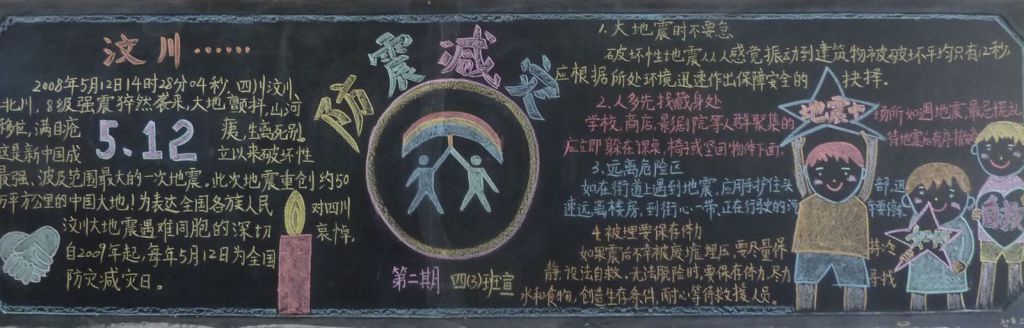 汶川……
2008年5月12日14时28分04秒，四川汶川、
北川，8级强震猝然袭来，大地颤抖，山河
移位，满目疮 痍，生离死别。
5.12
这是新中国成 立以来破坏性
最强、波及范围最大的一次地震。此次地震重创约50
万平方公里的中国大地！为表达全国各族人民 对四川
汶川大地震遇难同胞的深切 哀悼，
自2009年起，每年5月12日为全国
防灾减灾日。
防震减灾
第二期 四(3)班宣
1.大地震时不要急
破坏性地震从人感觉振动到建筑物被破坏平均只有12秒，
应根据所处环境迅速作出保障安全的 抉择。
2.人多先找藏身处
学校，商店，影剧院等人群聚集的 场所如遇地震，最忌慌乱
应立即躲在课桌，椅子或坚固物体下面， 待地震后有序撤离
3.远离危险区
如在街道上遇到地震，应用手护住头 部，迅
速远离楼房，到街心一带，正在行驶的
4.被埋要保存体力
如果震后不幸被废墟埋压，要尽量保 持冷
静，设法自救。无法脱险时，要保存体力，尽力 寻找
水和食物，创造生存条件，耐心等待救援人员。
地震中